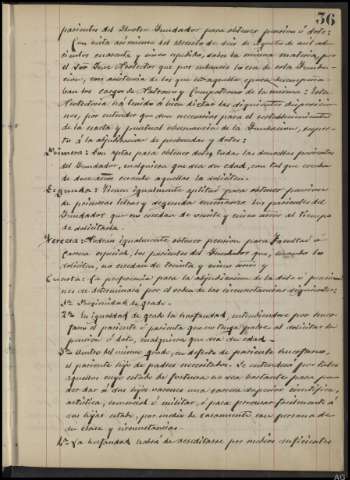 36
parientes del Ilustre Fundador para obtener pension ó dote:
Con vista asimismo del decreto de dos de Agosto de mil ocho
cientos cuarenta y cinco espedido, sobre la misma materia, por
el Sor Juez Protector que por entonces lo era de esta Funda
cion, con asistencia de los que en aquella época desempeña
ban los cargos de Patrono y Compatrono de la misma: Esta
Protectoria ha tenido á bien dictar las siguientes disposicio
nes, por entender que son necesarias para el establecimiento
de la exacta y puntual observancia de la Fundacion, respec
to á la adjudicacion de prebendas y dotes:
Primera: Son aptas para obtener dotes, todas las doncellas parientas
del Fundador, cualquiera que sea su edad, con tal que excedan
de doce años cuando aquellas la soliciten.
Segunda: Tienen igualmente aptitud para obtener pensiones
de primeras letras y segunda enseñanza los parientes del
Fundador que no excedan de veinte y cinco años al tiempo
de solicitarla.
Tercera: Podrán igualmente obtener pension para Facultad ó
carrera especial, los parientes del Fundador que, cuando la
soliciten, no excedan de treinta y cinco años.
Cuarta: La preferencia para la adjudicacion de la dote ó pensiones
se determinará por el orden de las circunstancias siguientes:
1ª Proximidad de grado.
2ª En igualdad de grado la horfandad, entendiéndose por huer
fano el pariente ó parienta que no tenga padre al solicitar la
pension ó dote, cualquiera que sea su edad.
3ª Dentro del mismo grado, en defecto de pariente huerfano,
el pariente hijo de padres necesitados. Se entenderán por tales
aquellos cuyo estado de fortuna no sea bastante para po
der dar á sus hijos varones una carrera superior científica,
artística, comercial ó militar, ó para procurar fácilmente á
sus hijas estado, por medio de casamiento con persona de
su clase y circunstancias.
4ª La horfandad habrá de acreditarse por medios suficientes